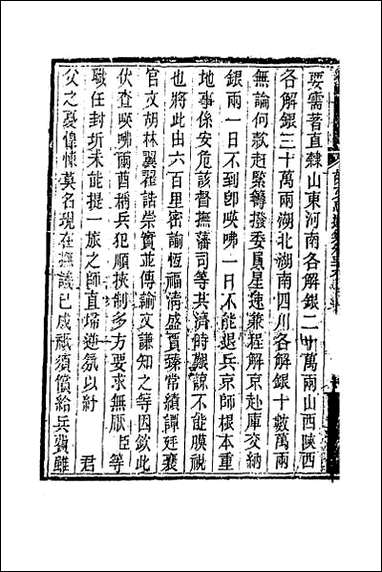 要需著直隸山東河南各解銀二十萬兩山西陝西
各解銀三十萬兩湖北湖南四川各解銀十數萬兩
無論何款趕緊籌撥委員星速兼程解京赴庫交納
銀兩一日不到卽㖟咈一日不能退兵京師根本重
地事係安危該督撫藩司等共濟時艱諒不能膜視
也將此由六百里密諭恆福淸盛賈臻常績譚廷襄
官文胡林翼翟誥崇實並傳諭文謙知之等因欽此
伏查㖟咈爾酋稱兵犯順挾制多方要求無厭臣等
職任封圻未能提一旅之師直埽逆氛以紓　　君
父之憂惶悚莫名現在撫議已成祇須償給兵費雖